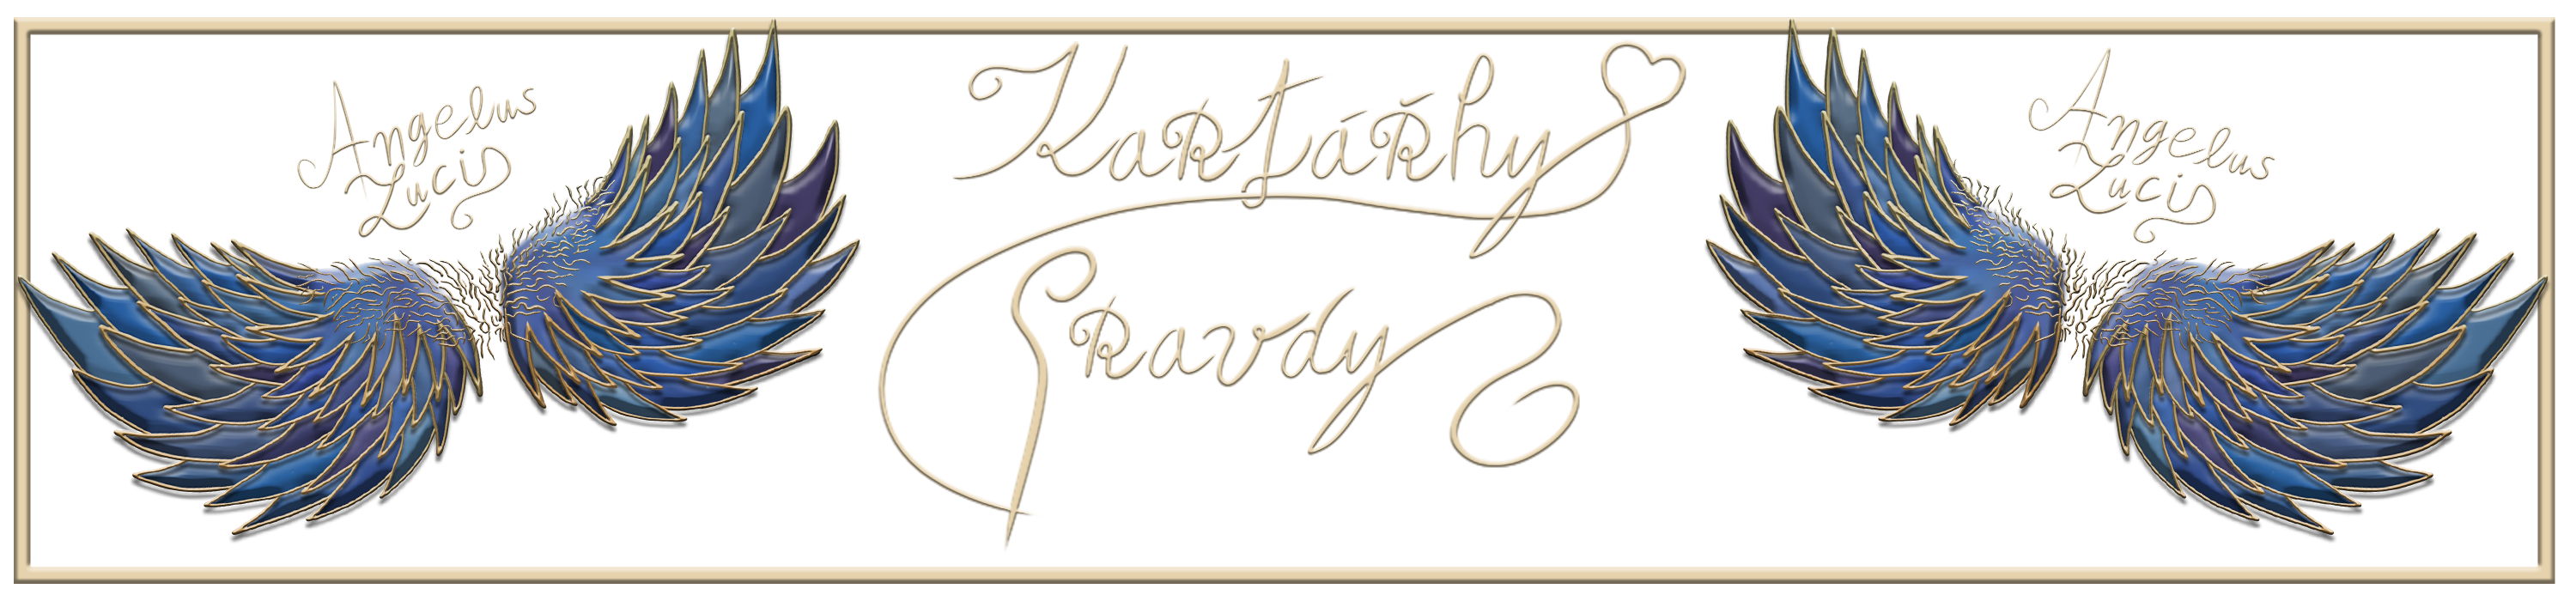 Angelus
Lucis
Kartářky
Pravdy
Angelus
Lucis